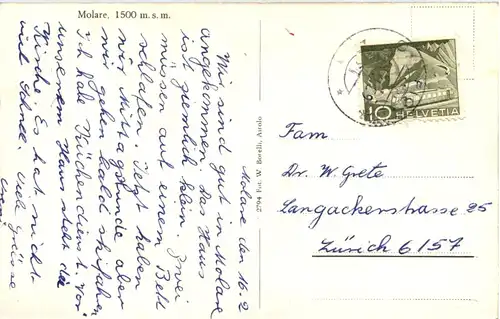 Molare, 1500 m. s. m.
Molare den 16.2
Wir sind gut in Molare
angekommen. Das Haus
ist ziemlich klein. Zwei
müssen auf einem Bett
schlafen. Jetzt haben
wir Mittagstunde aber
wir gehen bald skifahren
Ich habe Küchendienst. Vor
unserem Haus steht die
Kirche. Es hat nicht
viel Schnee. Viele Grüsse
Fot. W. Borelli, Airolo
10 HELVETIA
Fam
Dr. W. Grete
Langackerstrasse 25
Zürich 6/57